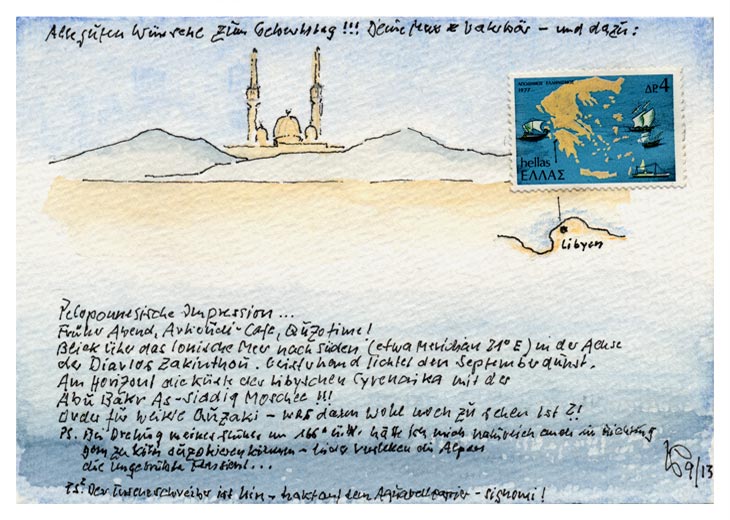 Alle guten Wünsche zum Geburtstag!!! Deine – und dazu:
ΑΠΟΔΗΜΟΣ ΕΛΛΗΝΙΣΜΟΣ
1977
ΔΡ. 4
hellas
ΕΛΛΑΣ
Libyen
Peloponnesische Impression...
Früher Abend, Arkoudi-Cafe, Ouzotime!
Blick über das Ionische Meer nach Süden (etwa Meridian 21° E) in der Achse
der Diavlos Zakinthou. lichtet den Septemberdunst.
Am Horizont die Küste der Libyschen Cyrenaika mit der
Abu Bakr As-Siddig Moschee!!!
Order für weitere Ouzaki – was dann wohl noch zu sehen ist?!
PS. Bei Drehung meines um 166° hätte ich mich natürlich auch in Richtung
Dom zu Köln können – leider die Alpen
die ungetrübte Fernsicht...
PS² Der ist hin – auf dem Aquarellpapier – signomi!
9/13